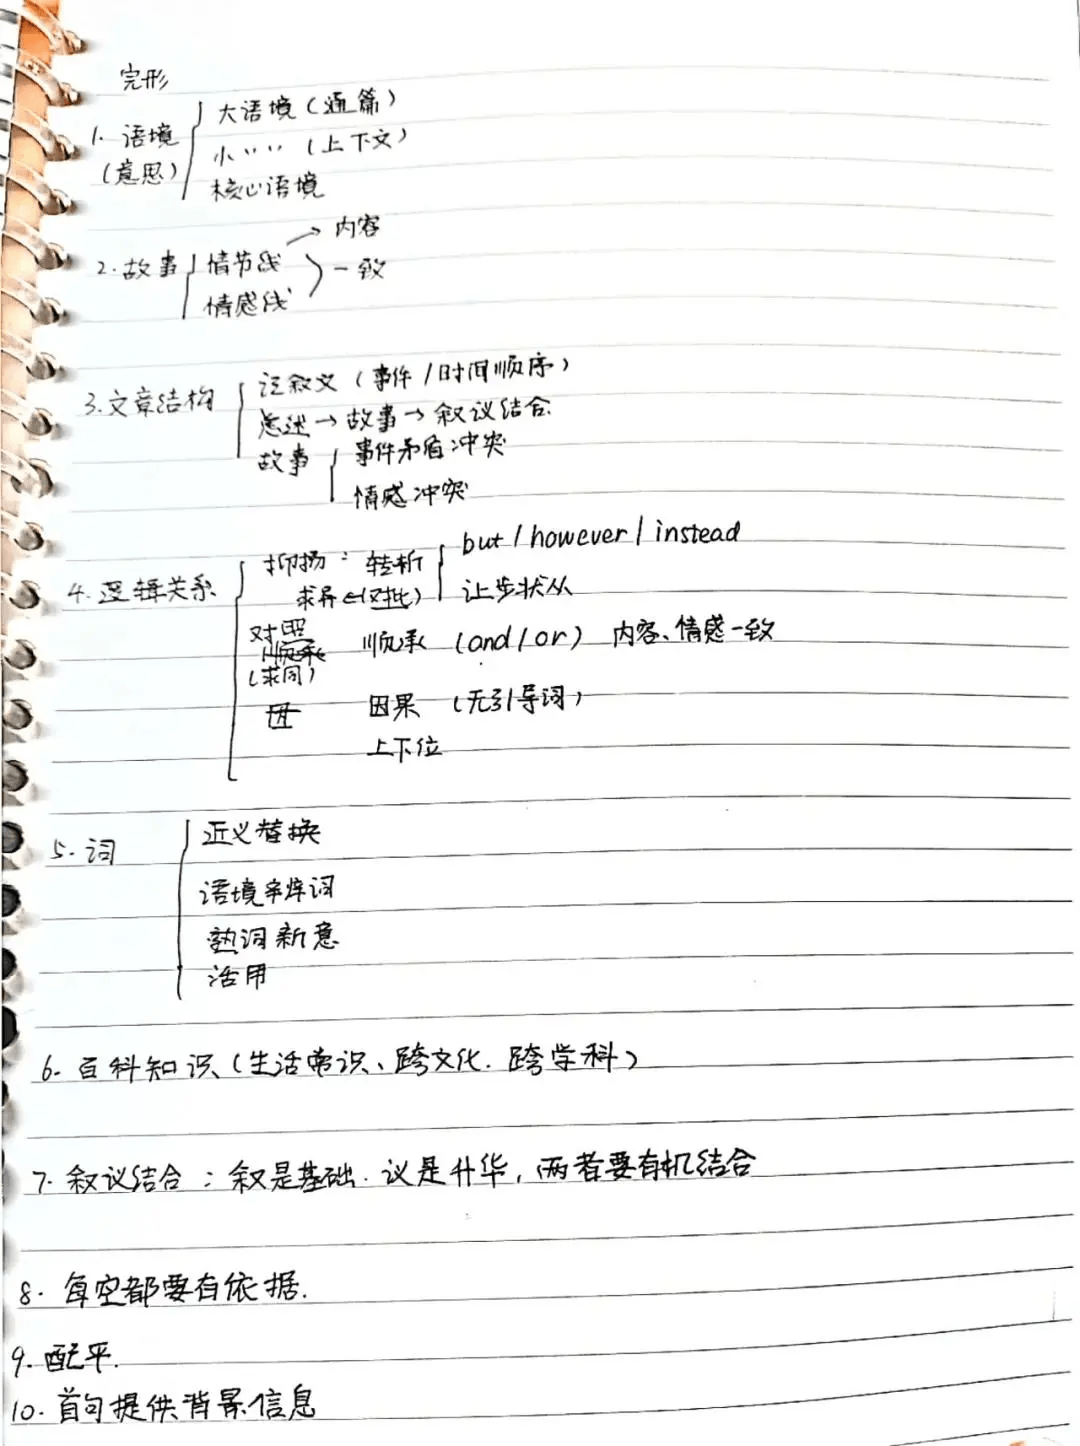 完形
1. 语境 大语境(通篇)
(意思) 小〃〃(上下文)
核心语境
内容
2. 故事 情节线 一致
情感线
3. 文章结构 记叙文(事件/时间顺序)
总述→故事→叙议结合
故事 事件矛盾冲突
情感冲突
4. 逻辑关系 抑扬: 转折 but/however/instead
求异←(对比) 让步状从
对照
顺承 顺承(and/or) 内容、情感一致
(求同)
因果(无引导词)
上下位
5. 词 近义替换
语境辛辣词
熟词新意
活用
6. 百科知识(生活常识、跨文化.跨学科)
7. 叙议结合:叙是基础.议是升华,两者要有机结合
8. 每空都要有依据.
9. 配平.
10. 首句提供背景信息